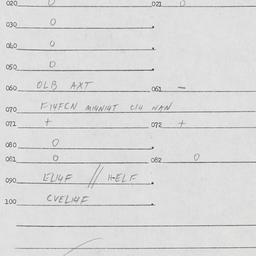 020 0 021 0
030 0
040 0
050 0
060 OLB AXT 061 —
070 FI4FCN MI4NI4T CI4 NAN
071 + 072 +
080 0
081 0 082 0
090 ELI4F // HELF
100 CVELI4F